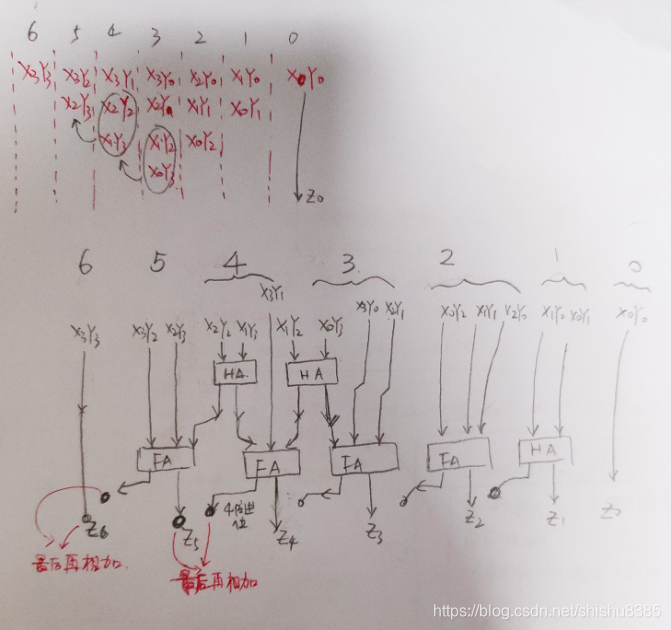 6 5 4 3 2 1 0
X3Y3 X3Y2 X3Y1 X3Y0 X2Y0 X1Y0 X0Y0
X2Y3 X2Y2 X2Y1 X1Y1 X0Y1
X1Y3 X1Y2 X0Y2
X0Y3
Z0
6 5 4 3. 2 1 0
X3Y1
X3Y3 X3Y2 X2Y3 X2Y2 X1Y3 X1Y2 X0Y3 X3Y0 X2Y1 X0Y2 X1Y1 X2Y0 X1Y0 X0Y1 X0Y0
HA. HA
FA FA FA FA HA
4的进位
Z6 Z5 Z4 Z3 Z2 Z1 Z0
最后再相加.
最后再相加
https://blog.csdn.net/shishu8385